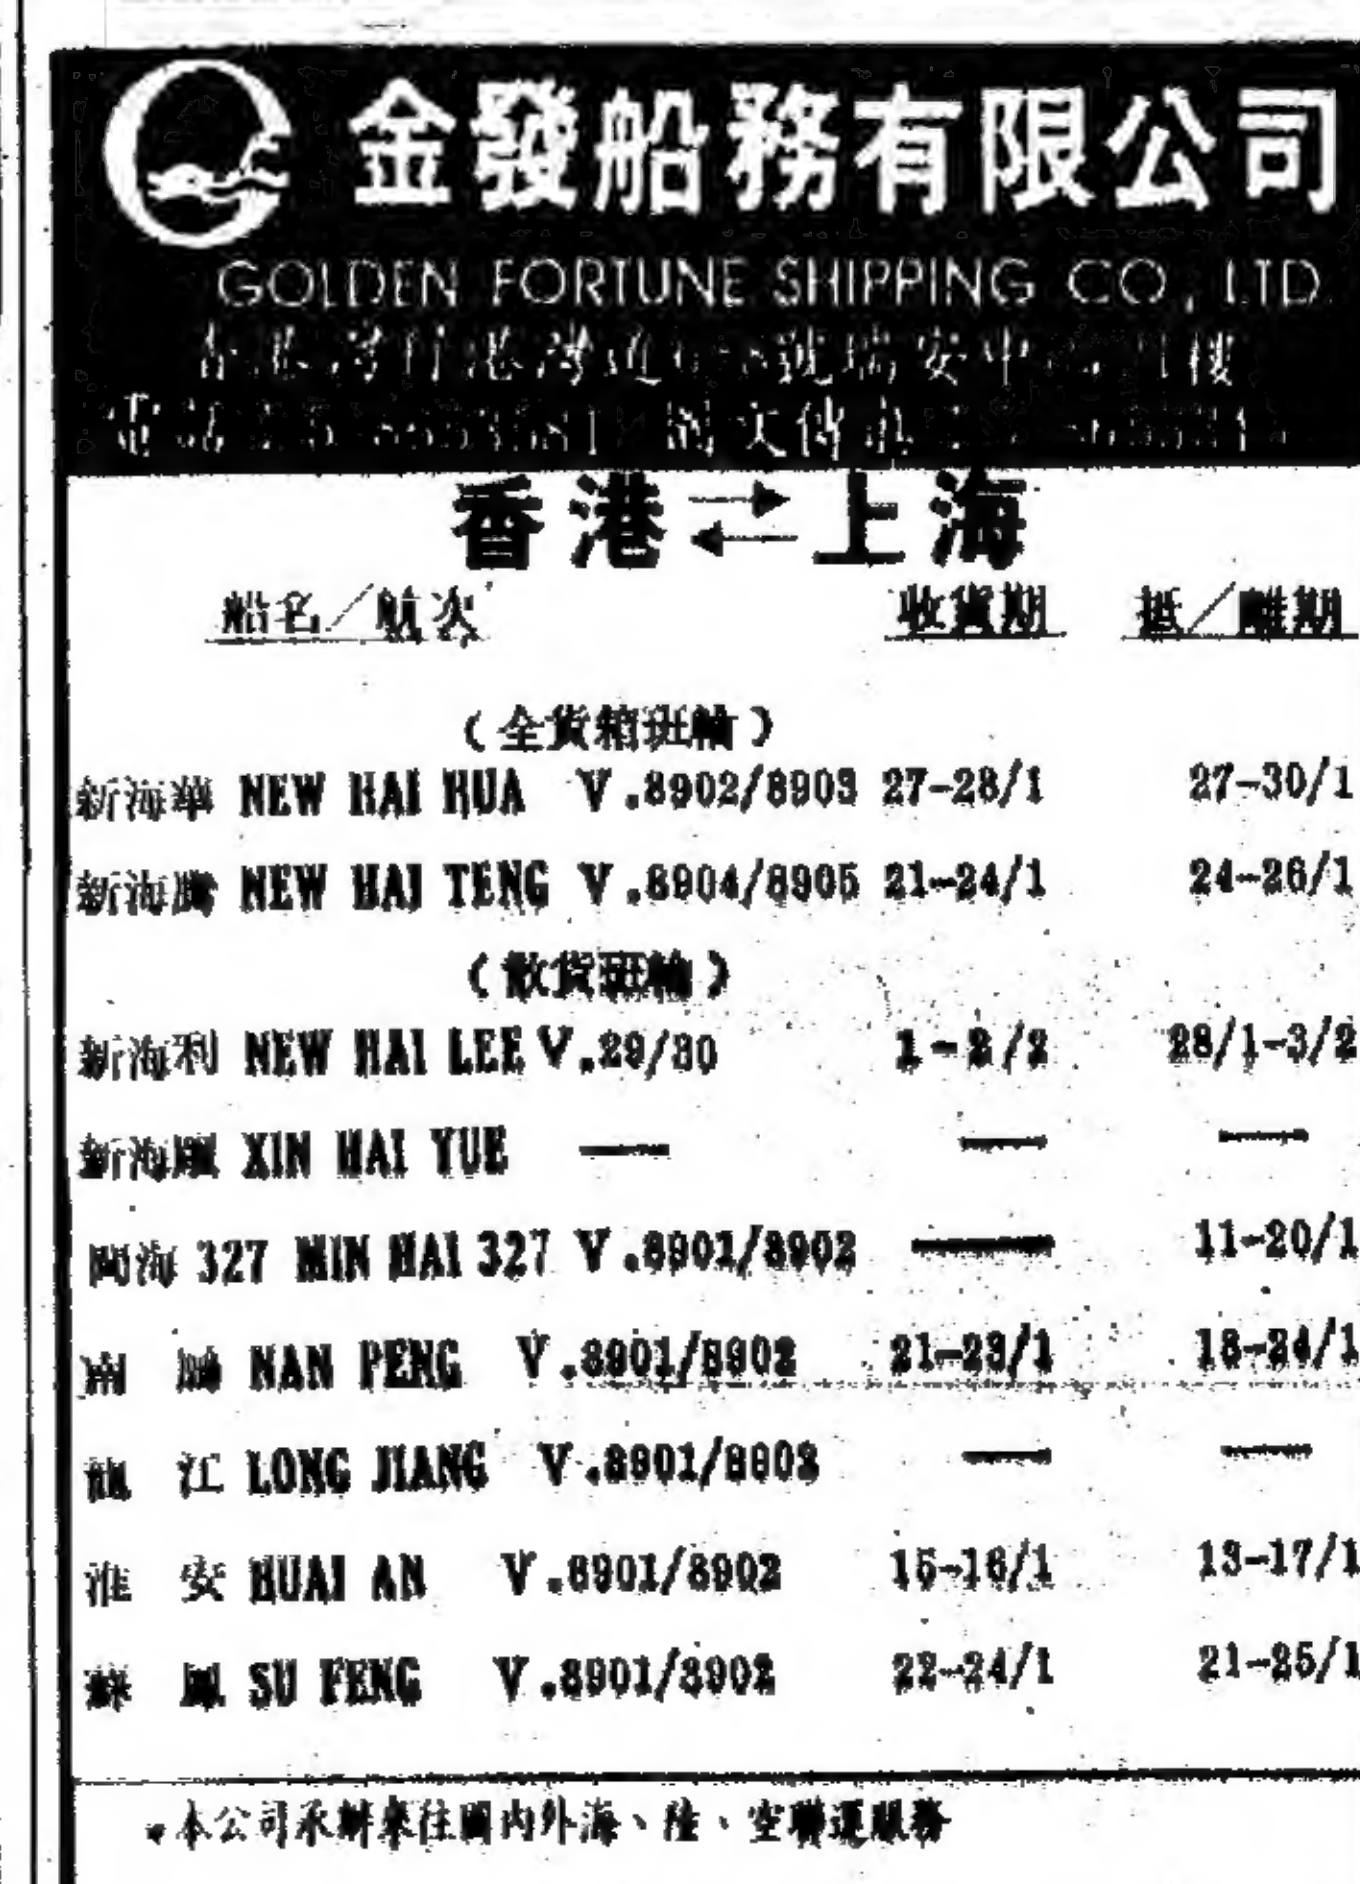 金發船務有限公司
GOLDEN FORTUNE SHIPPING CO., LTD.
香港灣仔港灣道 號瑞安中 樓
電話 圖文傳
香港⇄上海
船名／航次 收貨期 抵／離期
（全貨箱班輪）
新海華 NEW HAI HUA V.8902/8903 27-28/1 27-30/1
新海騰 NEW HAI TENG V.8904/8905 21-24/1 24-26/1
（散貨班輪）
新海利 NEW HAI LEE V.29/30 1-2/2 28/1-3/2
新海 XIN HAI YUE — — —
閩海 327 MIN HAI 327 V.8901/8902 — 11-20/1
南鵬 NAN PENG V.8901/8902 21-23/1 18-24/1
龍江 LONG JIANG V.8901/8902 — —
淮安 HUAI AN V.8901/8902 15-16/1 13-17/1
蘇鳳 SU FENG V.8901/8902 22-24/1 21-25/1
本公司承辦來往國內外海、陸、空聯運服務